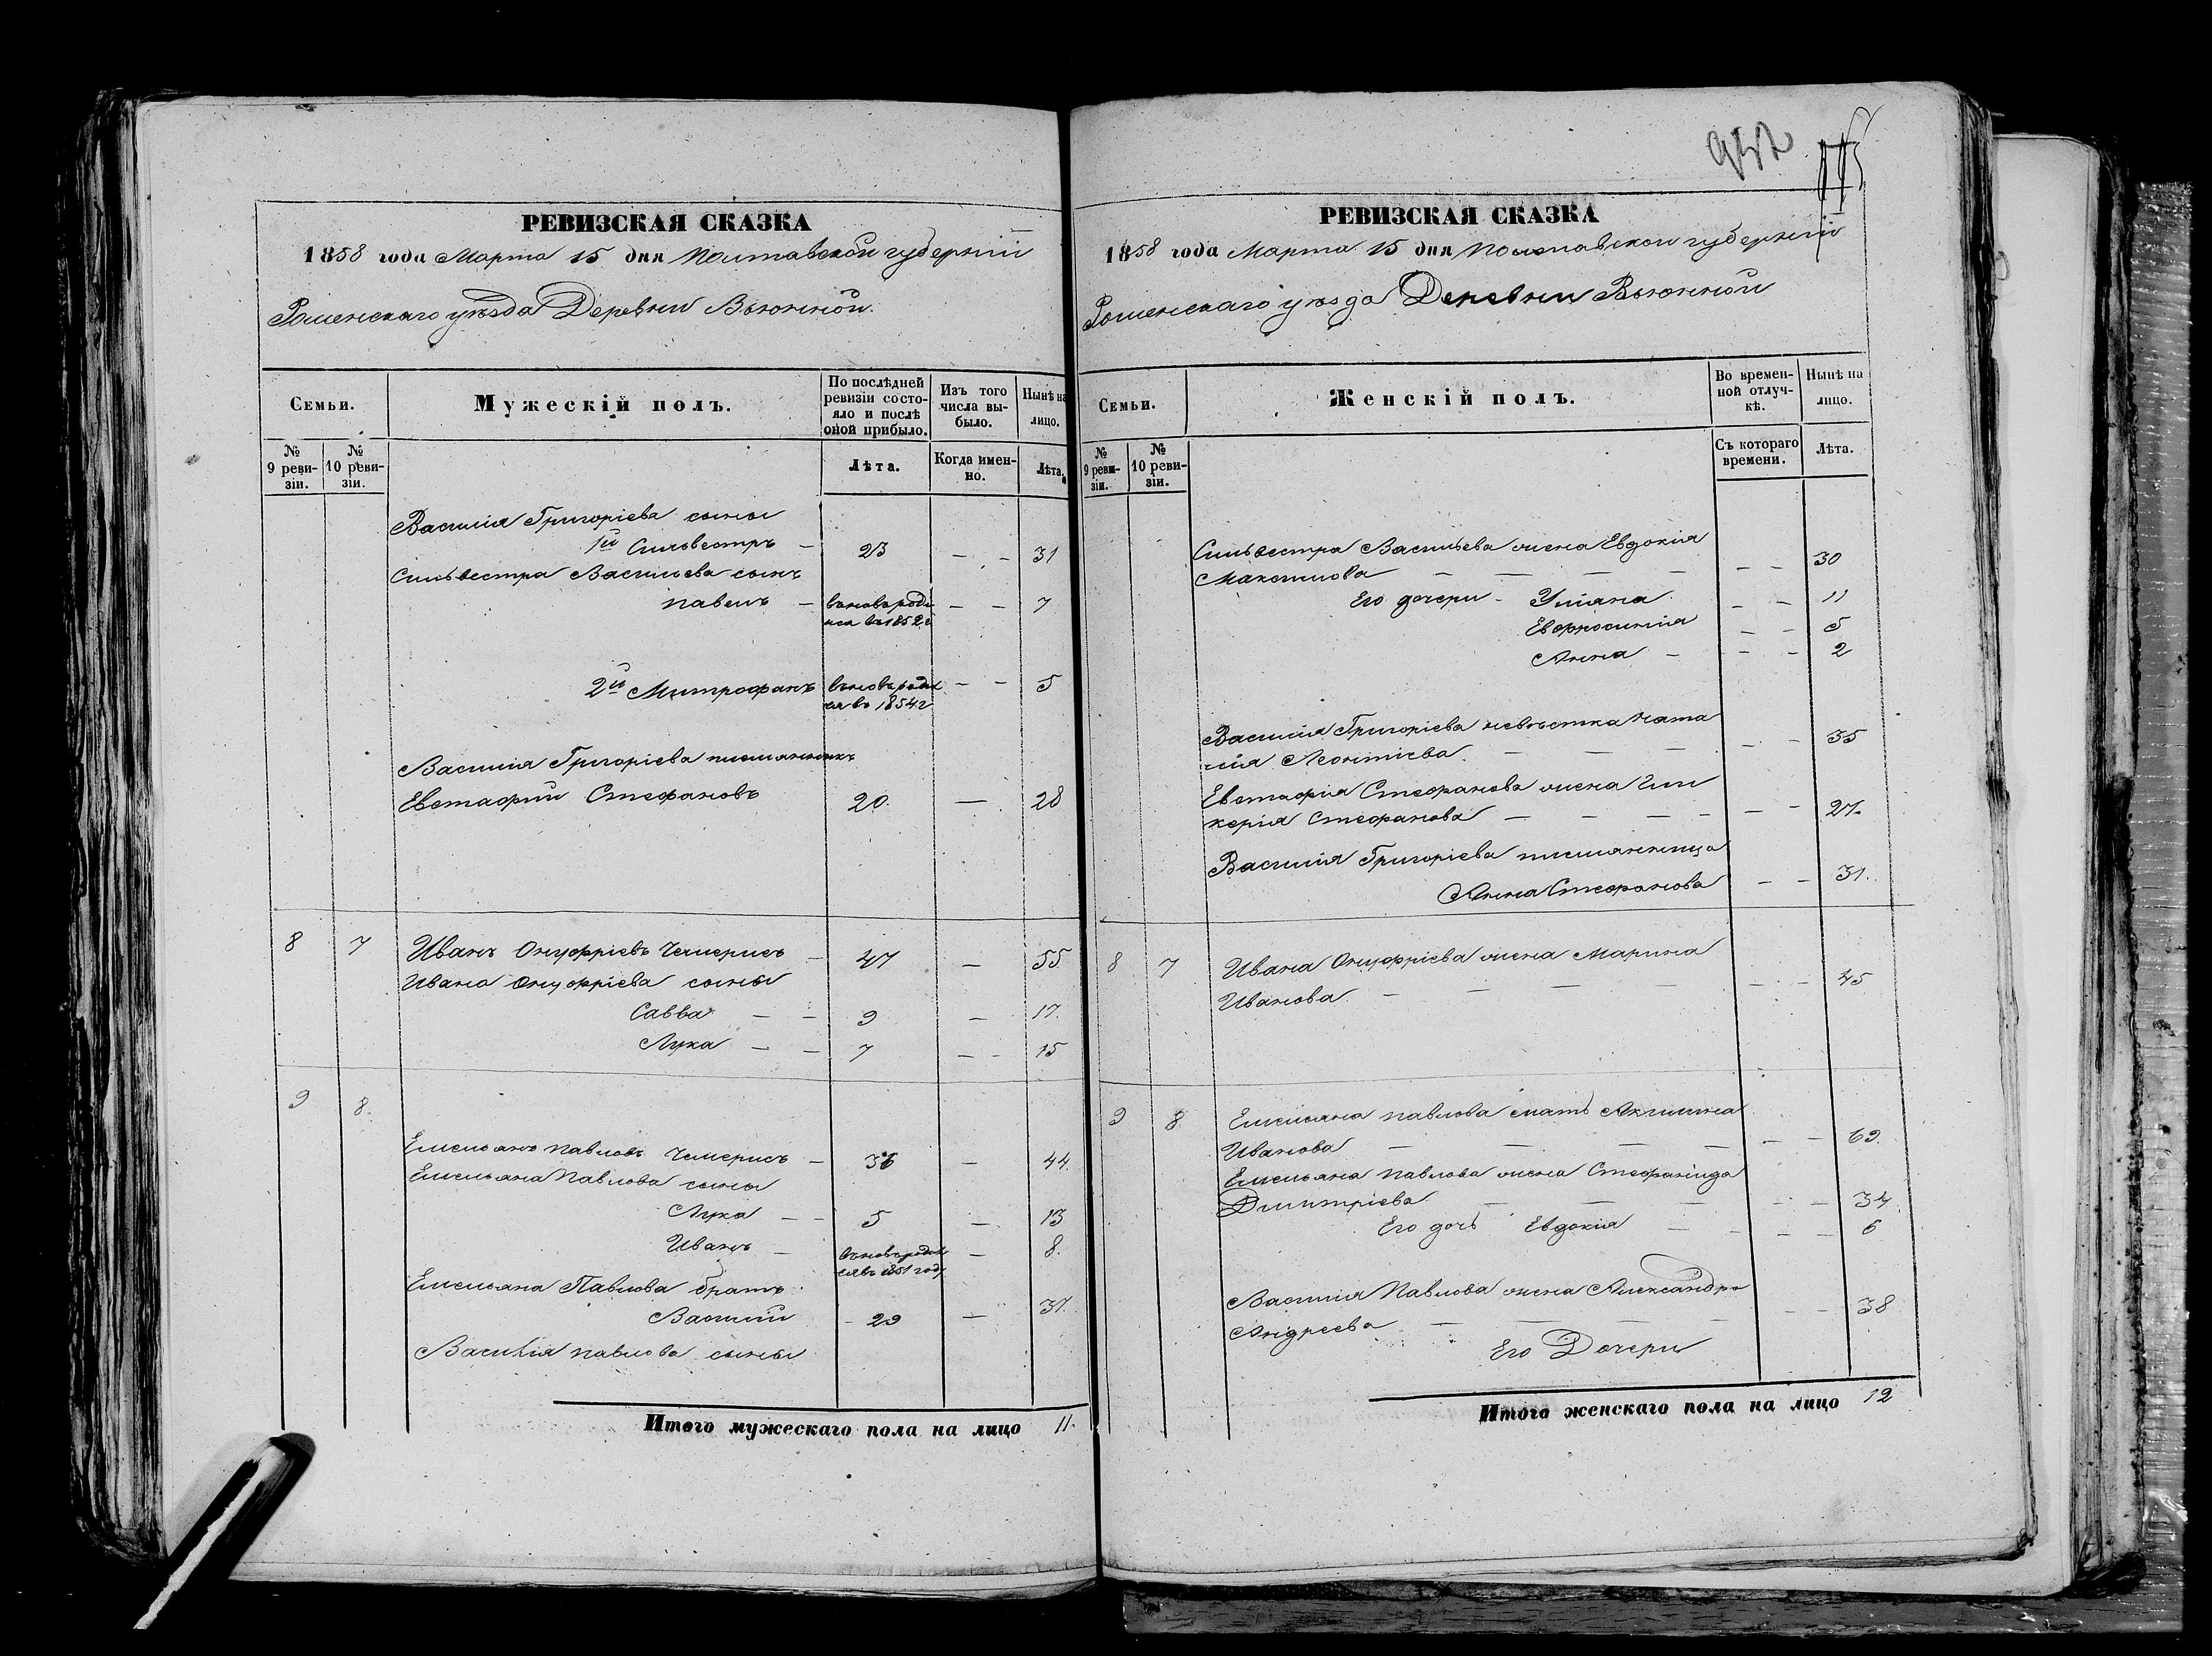 РЕВИЗСКАЯ СКАЗКА
1858 года Марта 15 дня Полтавской губерніи
Роменскаго уѣзда Деревни Вьюнной.
Семьи.
Мужескій полъ.
По послѣдней ревизіи состояло и послѣ оной прибыло.
Изъ того числа выбыло.
Нынѣ на лицо.
№ 9 ревизіи.
№ 10 ревизіи.
Лѣта.
Когда именно.
Лѣта.
Василія Григоріева сыны
1й Сильвестръ — 23 — — 31
Сильвестра Васильева сынъ
Павелъ — вновь родился въ 1852 г — — 7
2й Митрофанъ вновь родился въ 1854 г — — 5
Василія Григоріева племянникъ
Евстафій Стефановъ 20. — 28
8 7 Иванъ Онуфріевъ Чемерисъ — 47 — 55
Ивана Онуфріева сыны
Савва — — 9 — 17.
Лука — — 7 — — 15
9 8.
Емельянъ Павловъ Чемерисъ — 36 — 44.
Емельяна Павлова сыны
Лука — — 5 — 13
Иванъ — вновь родился въ 1851 году — 8.
Емельяна Павлова братъ
Василій — 29 — 37.
Василія Павлова сыны
Итого мужескаго пола на лицо 11.
РЕВИЗСКАЯ СКАЗКА
1858 года Марта 15 дня Полтавской губерніи
Роменскаго уѣзда Деревни Вьюнной
Семьи.
Женскій полъ.
Во временной отлучкѣ.
Нынѣ на лицо.
№ 9 ревизіи.
№ 10 ревизіи.
Съ котораго времени.
Лѣта.
Сильвестра Васильева жена Евдокія
Максимова — — — — — — 30
Его дочери - Уліяна — — 11
Евфросинія — — 5
Анна — — — 2
Василія Григоріева невѣстка Ната
лія Леонтіева. — — — — — 35
Евстафія Стефанова жена Гли
керія Стефанова — — — — — — 27.
Василія Григоріева племянница
Анна Стефанова — — 31.
8 7 Ивана Онуфріева жена Марина
Иванова — — — — — — 45
9 8 Емельяна Павлова мать Акилина
Иванова — — — — — — 69.
Емельяна Павлова жена Стефанида
Дмитріева — — — — — 34.
Его дочь Евдокія — — — — 6
Василія Павлова жена Александра
Андреева — — — — — — 38
Его Дочери
Итого женскаго пола на лицо 12